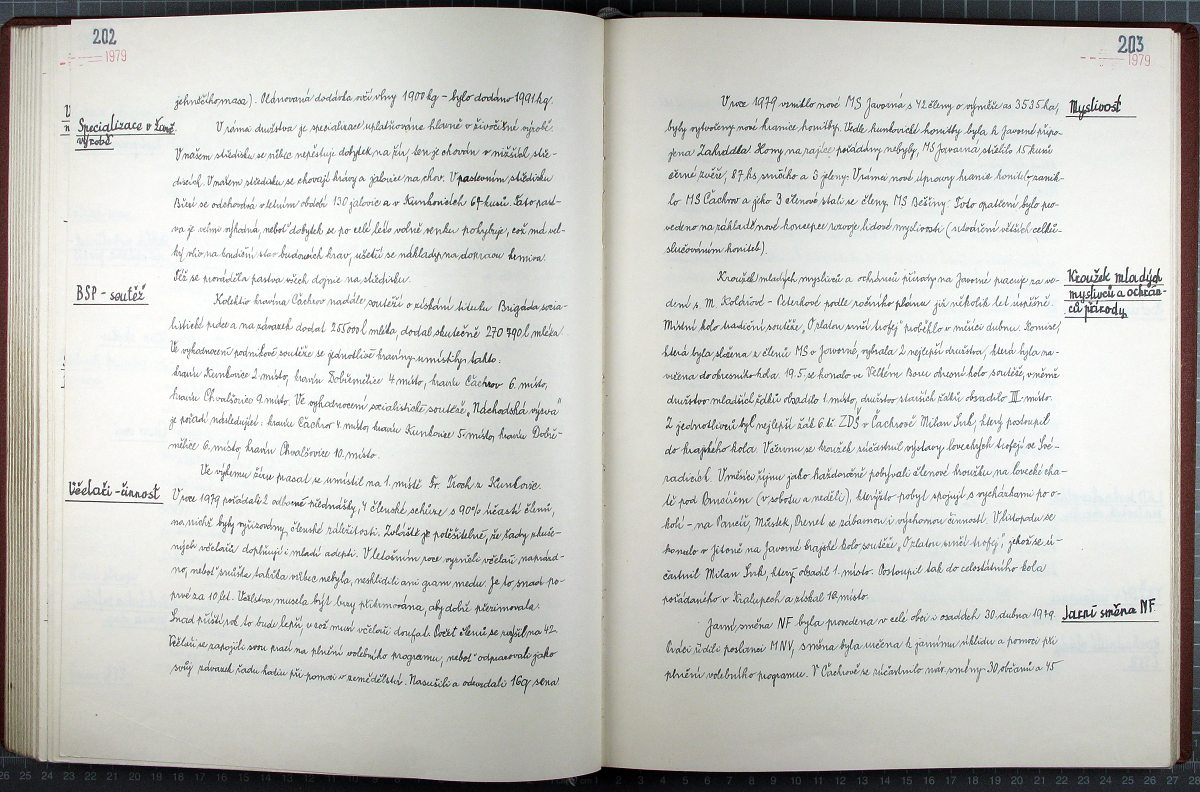 202
1979
jehněčího masa). Plánovaná dodávka ovčí vlny 1900 kg – bylo dodáno 1991 kg.
Specializace v živ. výrobě
V rámci družstva je specializace uplatňována hlavně v živočišné výrobě.
V našem středisku se vůbec nepěstuje dobytek na žír, ten je chován v nižších stře-
discích. V našem středisku se chovají krávy a jalovice na chov. V pastevním středisku
se odchovává v letním období 130 jalovic a v Kunkovicích 64 kusů. Tato past-
va je velmi výhodná, neboť dobytek se po celé léto volně venku pohybuje, což má vel-
ký vliv na budoucích krav, ušetří se náklady na dopravu krmiva.
Též se prováděla pastva všech dojnic na středisku.
BSP – soutěž
Kolektiv kravína Čachrov nadále soutěží o získání titulu Brigáda socia-
listické práce a na závazek dodat 255000 l mléka, dodal skutečně 270 790 l mléka.
Ve vyhodnocení podnikové soutěže se jednotlivé kravíny umístily takto:
kravín Kunkovice 2. místo, kravín Dobřemělice 4. místo, kravín Čachrov 6. místo,
kravín Chvalšovice 9. místo. Ve vyhodnocení socialistické soutěže „Náchodská výzva“
je pořadí následující: kravín Čachrov 4. místo, kravín Kunkovice 5. místo, kravín Dobře-
mělice 6. místo, kravín Chvalšovice 10. místo.
Ve výkrmu žíru prasat se umístil na 1. místě Fr. z Kunkovic.
Včelaři – činnost
V roce 1979 pořádali 2 odborné přednášky, 4 členské schůze s 90% účastí členů,
na nichž byly vyřizovány členské záležitosti. Zvláště je potěšitelné, že řady zkuše-
ných včelařů doplňují i mladí adepti. V letošním roce vyzněli včelaři naprázd-
no, neboť snůška takřka vůbec nebyla, nesklidili ani gram medu. Je to snad po-
prvé za 10 let. Včelstva musela být brzy přikrmována, aby dobře přezimovala.
Snad příští rok to bude lepší, v což musí včelaři doufat. Počet členů se zvýšil na 42.
Včelaři se zapojili svou prací na plnění volebního programu, neboť odpracovali jako
svůj závazek řadu hodin při pomoci v zemědělství. Nasušili a odevzdali 16 q sena
203
1979
Myslivost
V roce 1979 vzniklo nové MS Javorná s 42 členy o výměře as 3535 ha,
byly vytvořeny nové hranice honitby. Vedle kunkovické honitby byla k Javorné připo-
jena Zahrádka. Hony na zajíce pořádány nebyly, MS Javorná střelilo 15 kusů
černé zvěře, 87 ks srnčího a 3 jeleny. V rámci nové úpravy hranic honiteb zanik-
lo MS Čachrov a jeho 3 členové stali se členy MS Běšiny. Toto opatření bylo pro-
vedeno na základě nové koncepce rozvoje lidové myslivosti (utváření větších celků-
slučováním honiteb).
Kroužek mladých myslivců a ochrán-
ců přírody
Kroužek mladých myslivců a ochránců přírody na Javorné pracuje za ve-
dení s. M. Koldové - Peterkové podle ročního plánu již několik let úspěšně.
Místní kolo tradiční soutěže „O zlatou srnčí trofej“ proběhlo v měsíci dubnu. Komise,
která byla složena z členů MS v Javorné, vybrala 2 nejlepší družstva, která byla na-
vržena do okresního kola. 19.5. se konalo ve Velkém Boru okresní kolo soutěže, v němž
družstvo mladších žáků obsadilo 1. místo, družstvo starších žáků obsadilo III. místo.
Z jednotlivců byl nejlepší žák 6. tř. ZDŠ v Čachrově Milan Srk, který postoupil
do krajského kola. V červnu se kroužek zúčastnil výstavy loveckých trofejí ve Své-
radicích. V měsíci říjnu jako každoročně pobývali členové kroužku na lovecké cha-
tě pod (v sobotu a neděli), kterýžto pobyt spojují s vycházkami po o-
kolí – na Pancíř, Můstek, Prenet se zábavnou i výchovnou činností. V listopadu se
konalo v Jitoně na Javorné krajské kolo soutěže „O zlatou srnčí trofej“, jehož se zú-
častnil Milan Srk, který obsadil 1. místo. Postoupil tak do celostátního kola
pořádaného v Kralupech a získal 16. místo.
Jarní směna NF
Jarní směna NF byla provedena v celé obci i osadách 30. dubna 1979.
Práci řídili poslanci MNV, směna byla určena k jarnímu úklidu a pomoci při
plnění volebního programu. V Čachrově se zúčastnilo nár. směny 30 občanů a 45